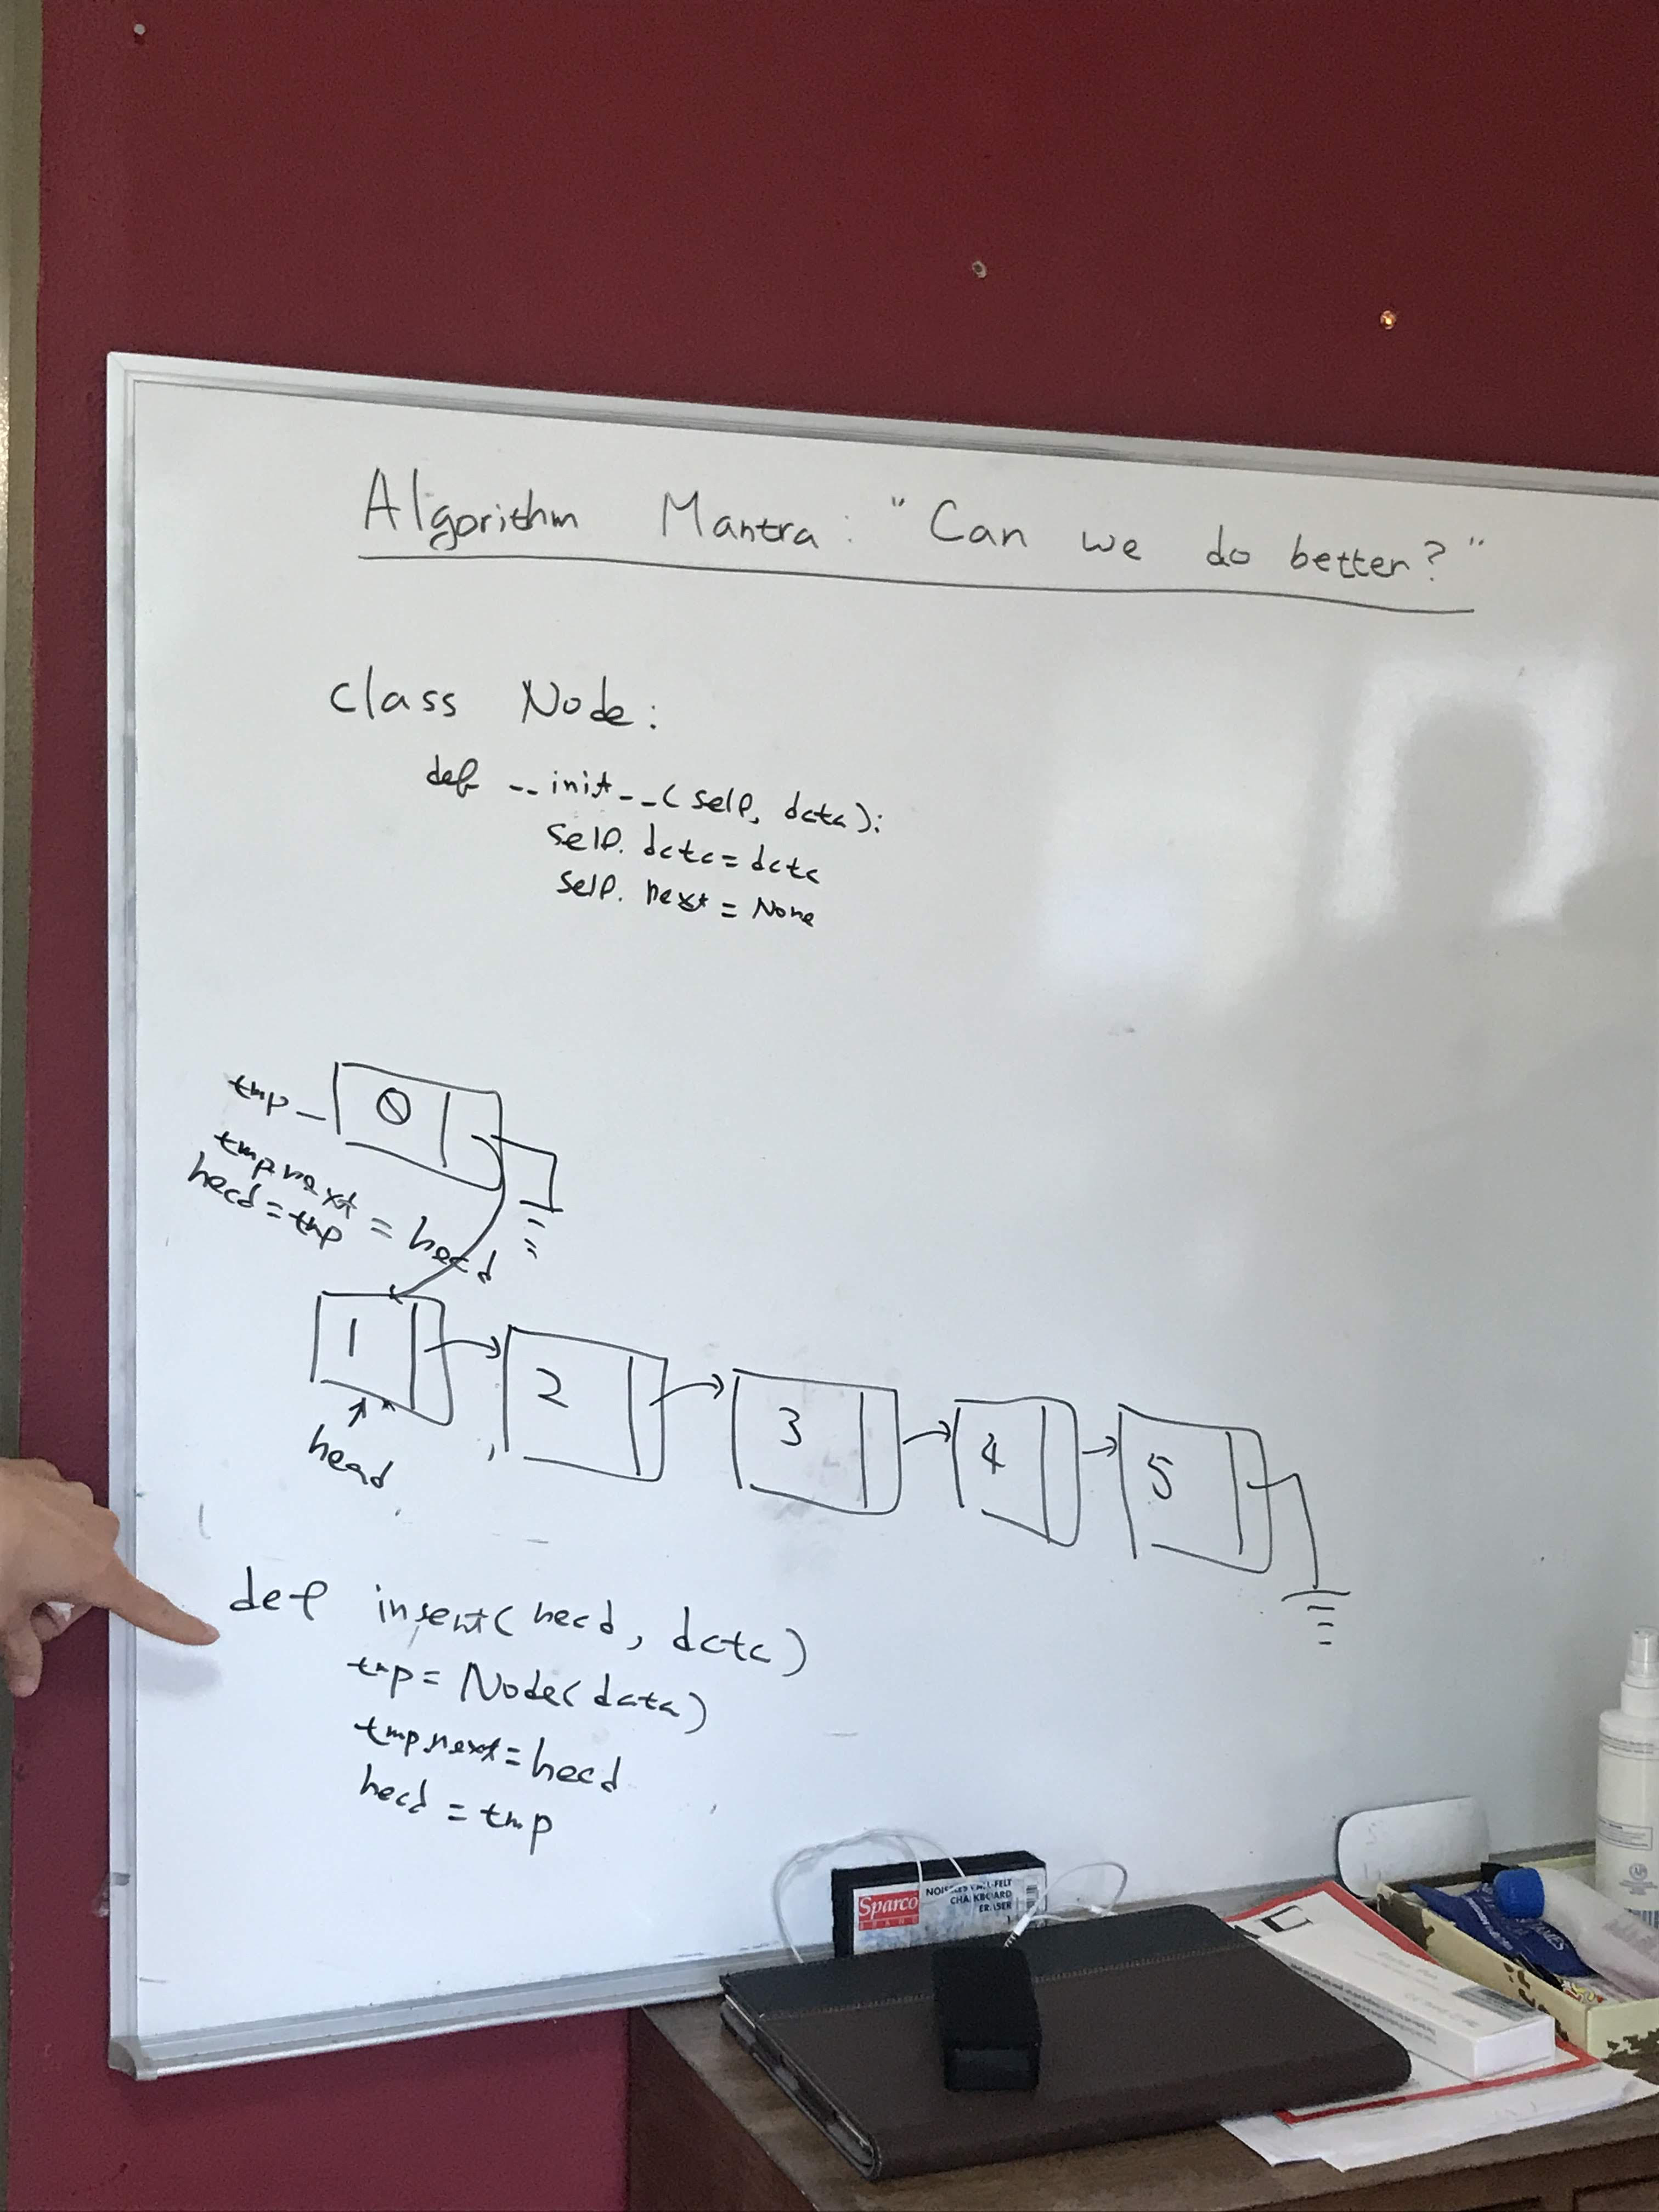 Algorithm Mantra: "Can we do better?"
class Node:
def __init__(self, data):
self.data = data
self.next = None
tmp
0
tmp.next = head
head = tmp
1
2
3
4
5
head
def insert(head, data)
tmp = Node(data)
tmp.next = head
head = tmp
Sparco
BRAND
CHALKBOARD
ERASER